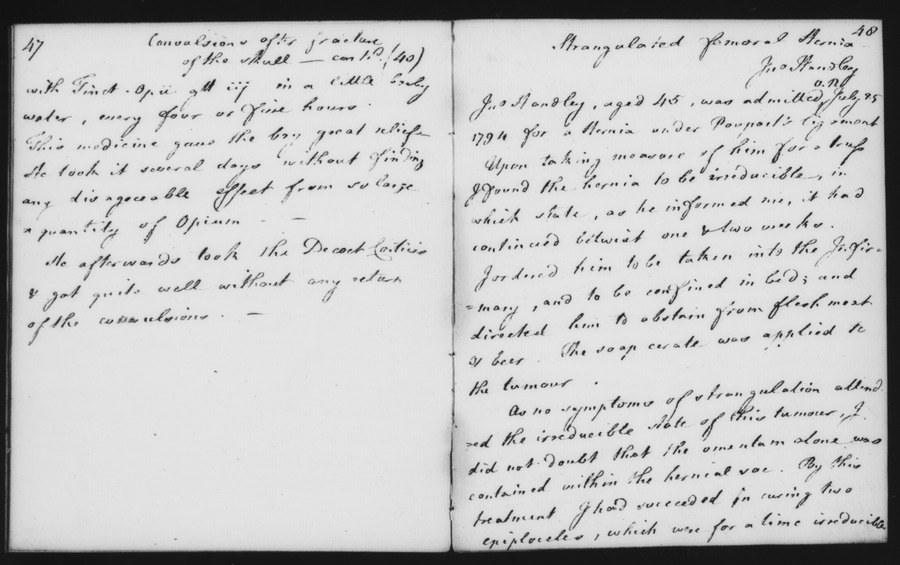 47
Convulsions after fracture
of the skull — contd. (40)
with Tinct. Opii gtt iij in a little barley
water, every four or five hours.
This medicine gave the boy great relief.
He took it several days without finding
any disagreeable effect from so large
a quantity of Opium. —
He afterwards took the Decoct Corticis
& got quite well without any return
of the convulsions. —
48
Strangulated femoral Hernia
Jno Standley
Jno Standley, aged 45, was admitted July 25
1794 for a Hernia under Poupart's ligament
Upon taking measure of him for a truss
I found the hernia to be irreducible, in
which state, as he informed me, it had
continued betwixt one & two weeks.
I order'd him to be taken into the Infir=
=mary, and to be confined in bed; and
directed him to abstain from flesh meat
& beer. The soap cerate was applied to
the tumour.
As no symptoms of strangulation attend
=ed the irreducible state of this tumour, I
did not doubt that the omentum alone was
contained within the hernial sac. By this
treatment I had succeeded in curing two
epiploceles, which were for a time irreducible